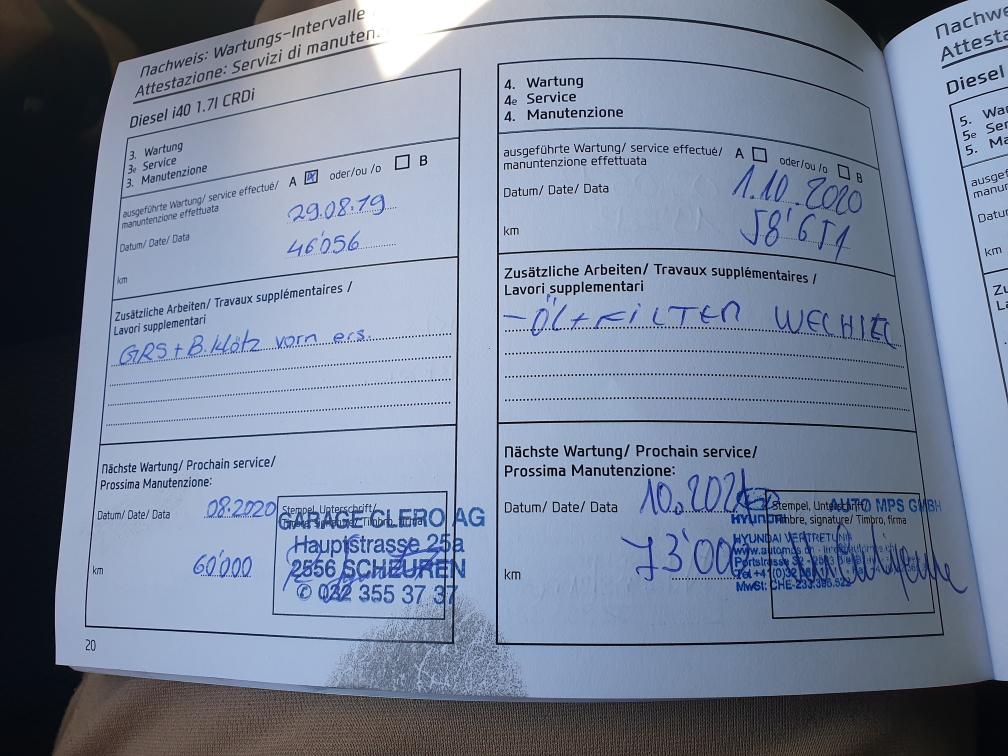 Nachweis: Wartungs-Intervalle
Attestazione: Servizi di manuten
Diesel i40 1.7l CRDi
3. Wartung
3e Service
3. Manutenzione
ausgeführte Wartung/ service effectué/ A oder/ou /o B
manuntenzione effettuata
Datum/ Date/ Data 29.08.19
km 46'056
Zusätzliche Arbeiten/ Travaux supplémentaires /
Lavori supplementari
GRS + B.klötz vorn ers.
Nächste Wartung/ Prochain service/
Prossima Manutenzione:
Datum/ Date/ Data 08.2020
Stempel, Unterschrift/
GARAGE CLERO AG
Hauptstrasse 25a
2556 SCHEUREN
✆ 032 355 37 37
km 60'000
20
4. Wartung
4e Service
4. Manutenzione
ausgeführte Wartung/ service effectué/ A oder/ou /o B
manuntenzione effettuata
Datum/ Date/ Data 1.10.2020
km 58'651
Zusätzliche Arbeiten/ Travaux supplémentaires /
Lavori supplementari
- ÖL + FILTER WECHSEL
Nächste Wartung/ Prochain service/
Prossima Manutenzione:
Datum/ Date/ Data 10.2021
km 73'000
Stempel, Unterschrift/
Timbre, signature/ Timbro, firma
AUTO MPS GMBH
HYUNDAI
HYUNDAI VERTRETUNG
Nachw
Attesta
Diesel
5. War
5e Ser
5. Ma
ausgef
manun
Datu
km
Zu
La